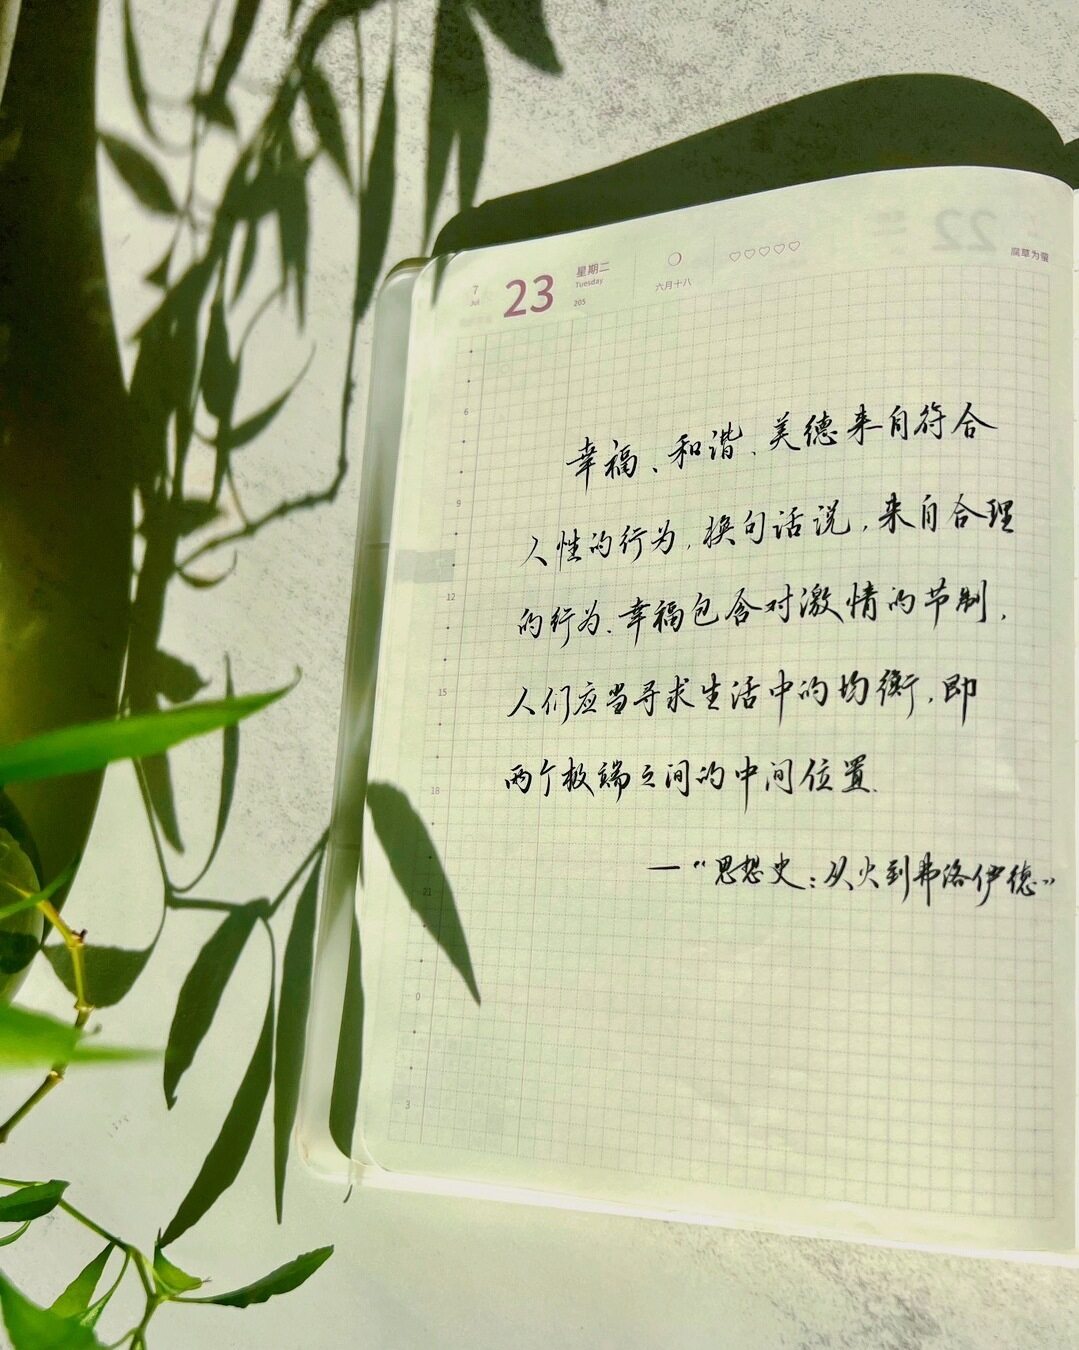 7
Jul
23
星期二
Tuesday
205
六月十八
♡♡♡♡♡
腐草为萤
6
9
12
15
18
21
0
3
幸福、和谐、美德来自符合
人性的行为,换句话说,来自合理
的行为.幸福包含对激情的节制,
人们应当寻求生活中的均衡,即
两个极端之间的中间位置.
—“思想史:从火到弗洛伊德”